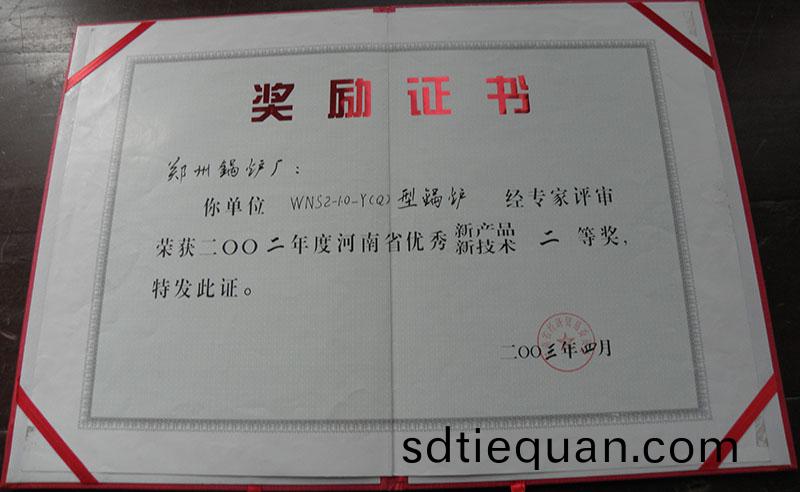 奖励证书
郑州锅炉厂：
你单位 WNS2-1.0-Y(Q)型锅炉 经专家评审
荣获二〇〇二年度河南省优秀新产品新技术 二 等奖，
特发此证。
二〇〇三年四月
sdtiequan.com